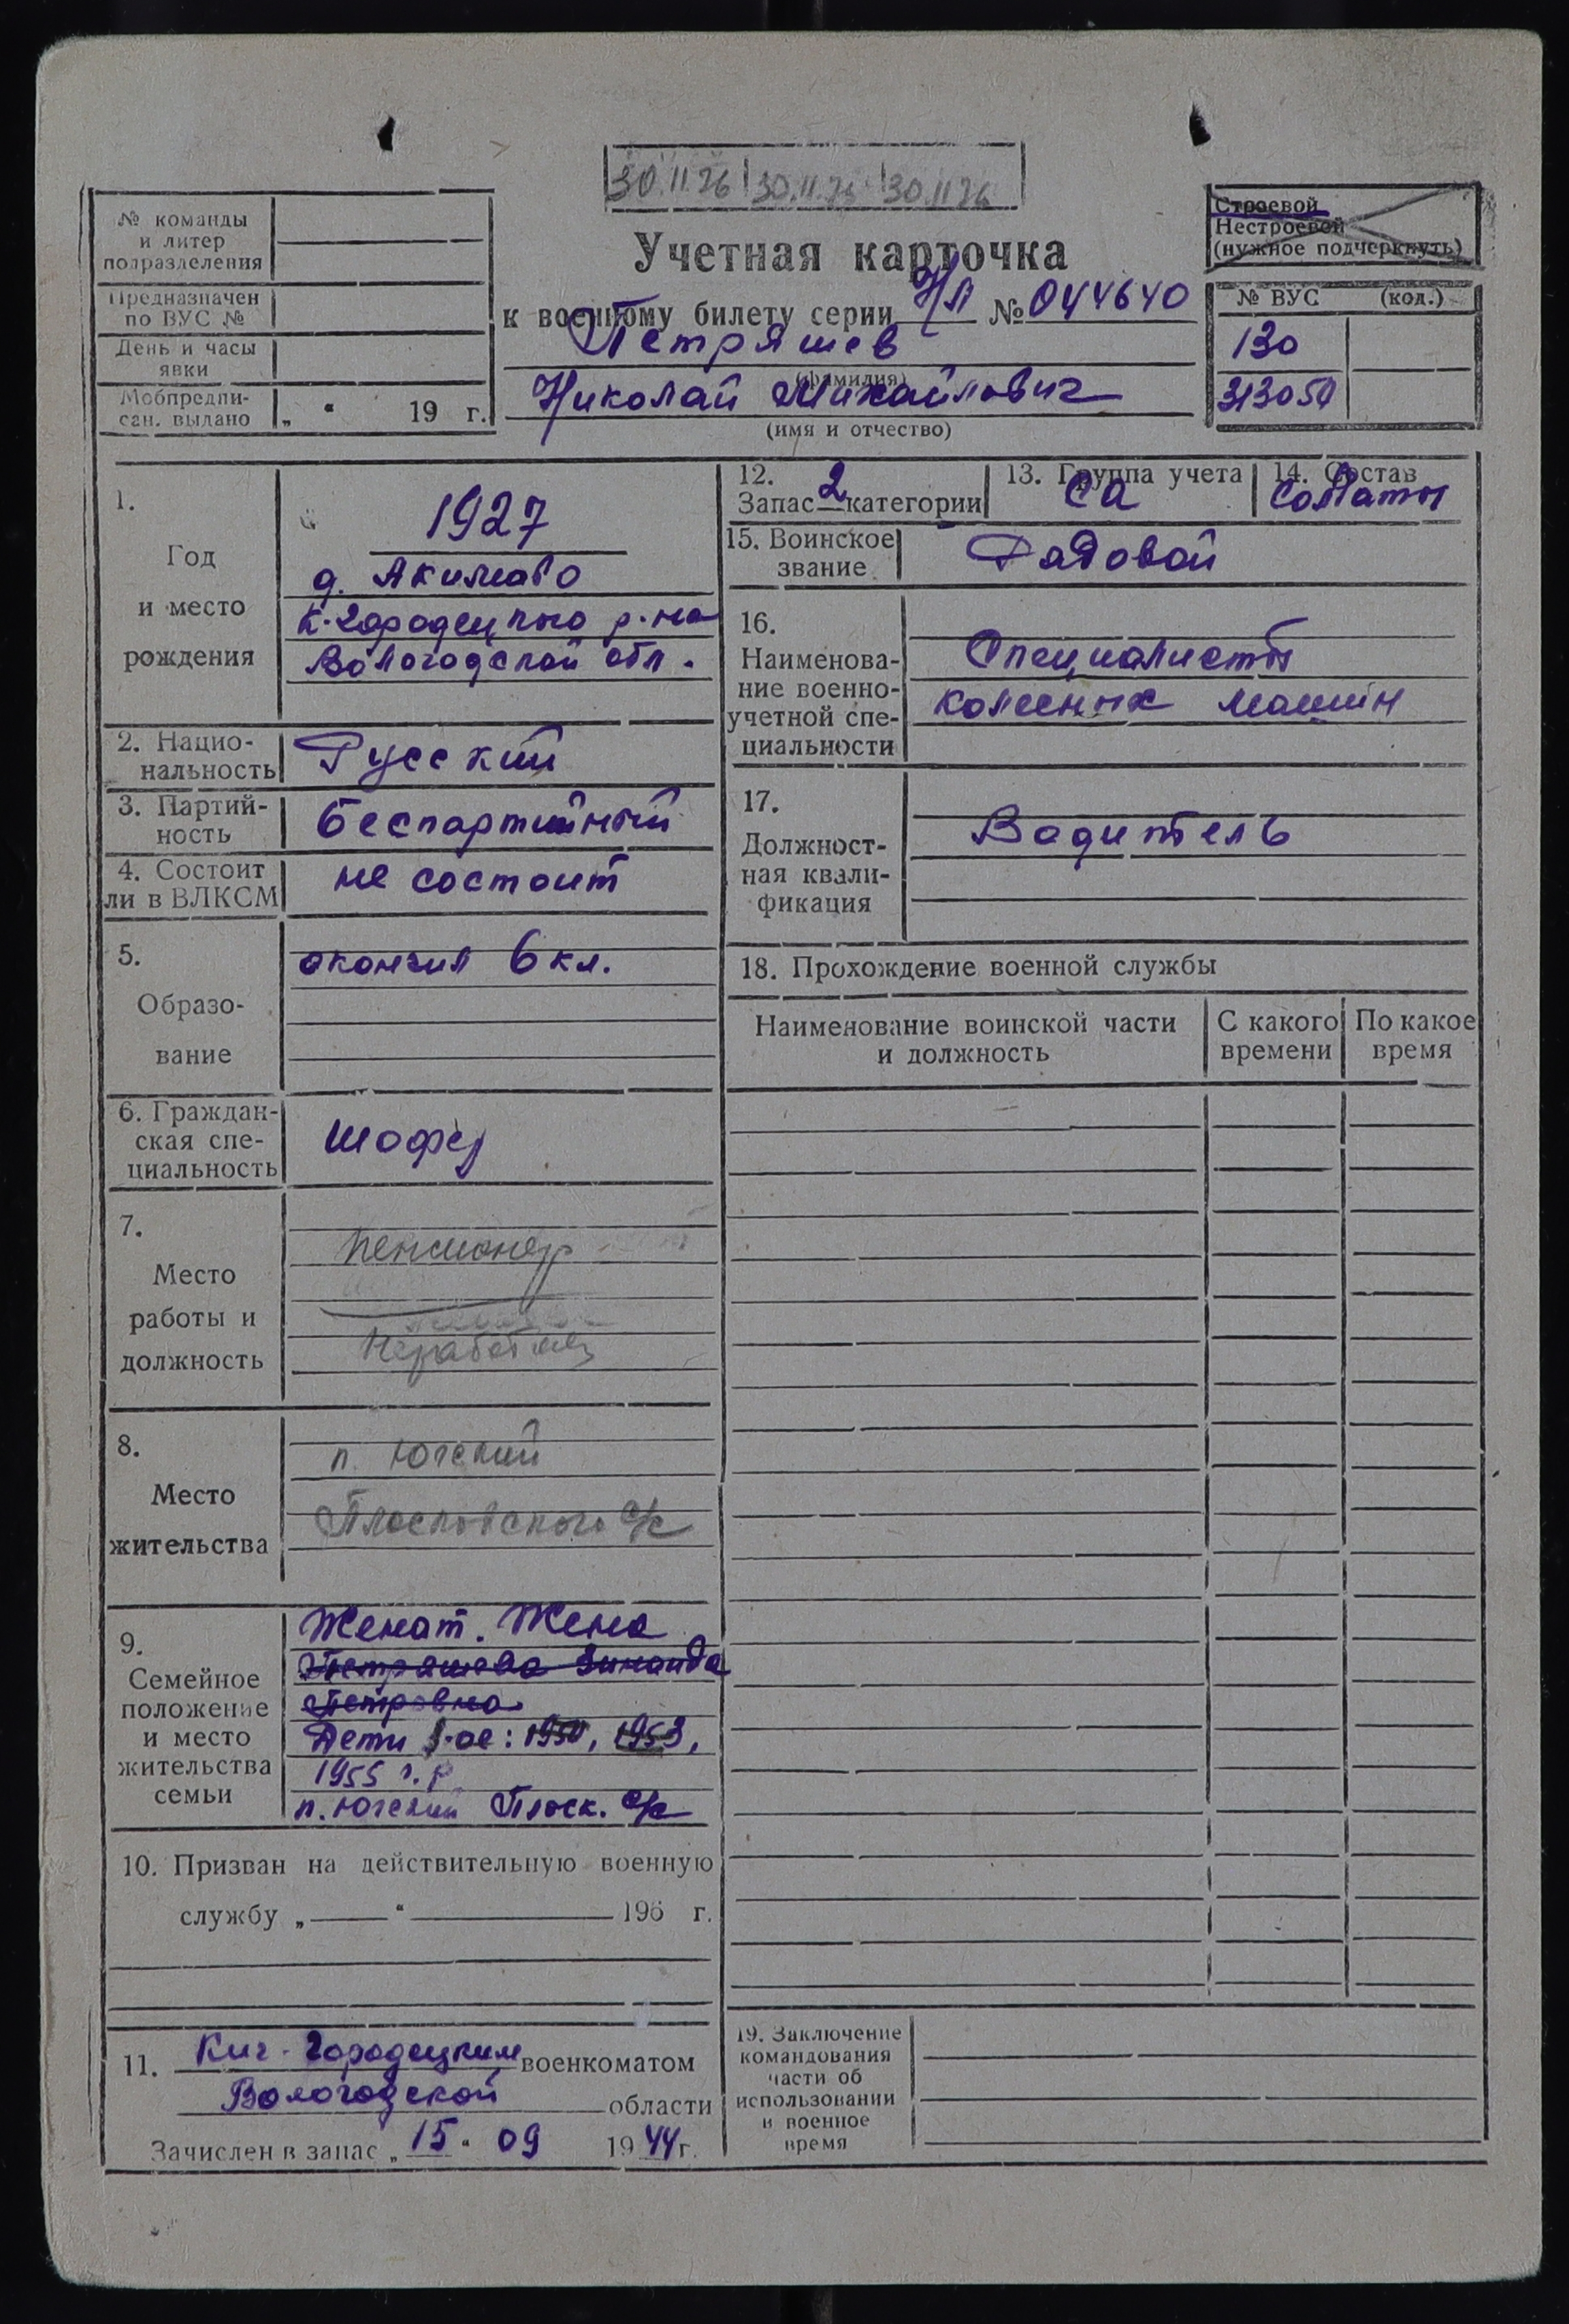 30.11.76 30.11.76 30.11.76
№ команды
и литер
подразделения
Предназначен
по ВУС №
День и часы
явки
Мобпредпи-
сан. выдано „ “ 19 г.
Учетная карточка
к военному билету серии НЛ № 044640
Петряшев
(фамилия)
Николай Михайлович
(имя и отчество)
Строевой
Нестроевой
(нужное подчеркнуть)
№ ВУС (код.)
130
313050
1.
Год
и место
рождения
1927
д. Акимово
К-Городецкого р-на
Вологодской обл.
2. Нацио-
нальность
Русский
3. Партий-
ность
беспартийный
4. Состоит
ли в ВЛКСМ
не состоит
5.
Образо-
вание
окончил 6 кл.
6. Граждан-
ская спе-
циальность
шофер
7.
Место
работы и
должность
пенсионер
8.
Место
жительства
п. Югский
Плосковского с/с
9.
Семейное
положение
и место
жительства
семьи
Женат. Жена
Петряшева Зинаида
Петровна
Дети -ое: 1950, 1953,
1955 г.р.
п. Югский Плоск. с/с
10. Призван на действительную военную
службу „ “ 196 г.
11. Кич-Городецким военкоматом
Вологодской области
Зачислен в запас „ 15 “ 09 1944 г.
12.
Запас 2 категории
13. Группа учета
СА
14. Состав
солдаты
15. Воинское
звание
Рядовой
16.
Наименова-
ние военно-
учетной спе-
циальности
Специалисты
колесных машин
17.
Должност-
ная квали-
фикация
Водитель
18. Прохождение военной службы
Наименование воинской части
и должность
С какого
времени
По какое
время
19. Заключение
командования
части об
использовании
в военное
время